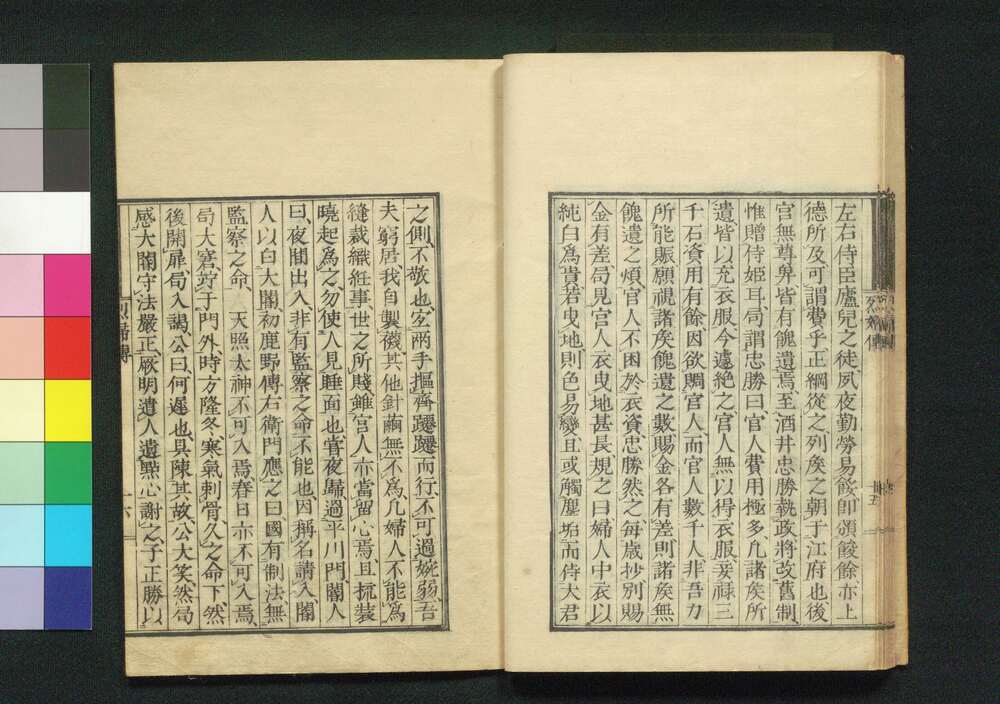 左右侍臣廬兒之徒夙夜勤勞易餒卽頒餕餘亦上
德所及可謂費乎正綱從之列矦之朝于江府也後
官無尊卑皆有餽遺焉至酒井忠勝執政將改舊制
惟贈侍姬耳局謂忠勝曰官人費用極多凢諸矦所
遺皆以充衣服今遽絶之官人無以得衣服妾祿三
千石資用有餘因欲賙官人而官人數千人非吾力
所能賑願視諸矦餽遺之數賜金各有差則諸矦無
餽遺之煩官人不困於衣資忠勝然之每歲抄別賜
金有差局見官人衣曳地甚長規之曰婦人中衣以
純白爲貴若曳地則色易變且或觸塵垢而侍大君
烈婦傳
十五
之側不敬也宐兩手摳齊躩躩而行不可過婉弱吾
夫窮居我自製襪其他針黹無不爲凢婦人不能爲
縫裁織絍事世之所賤雖官人亦當留心焉且梳裝
曉起爲之勿使人見睡面也甞夜歸過平川門閽人
曰夜閒出入非有監察之命不能也因稱名請入閽
人以白大閽初鹿野傳右衞門應之曰國有制法無
監察之命 天照太神不可入焉春日亦不可入焉
局大窘竚于門外時方隆冬寒氣刺骨久之命下然
後開扉局入謁公曰何遲也具陳其故公大笑然局
感大閽守法嚴正厥明遺人遺點心謝之子正勝以
烈婦傳
十六